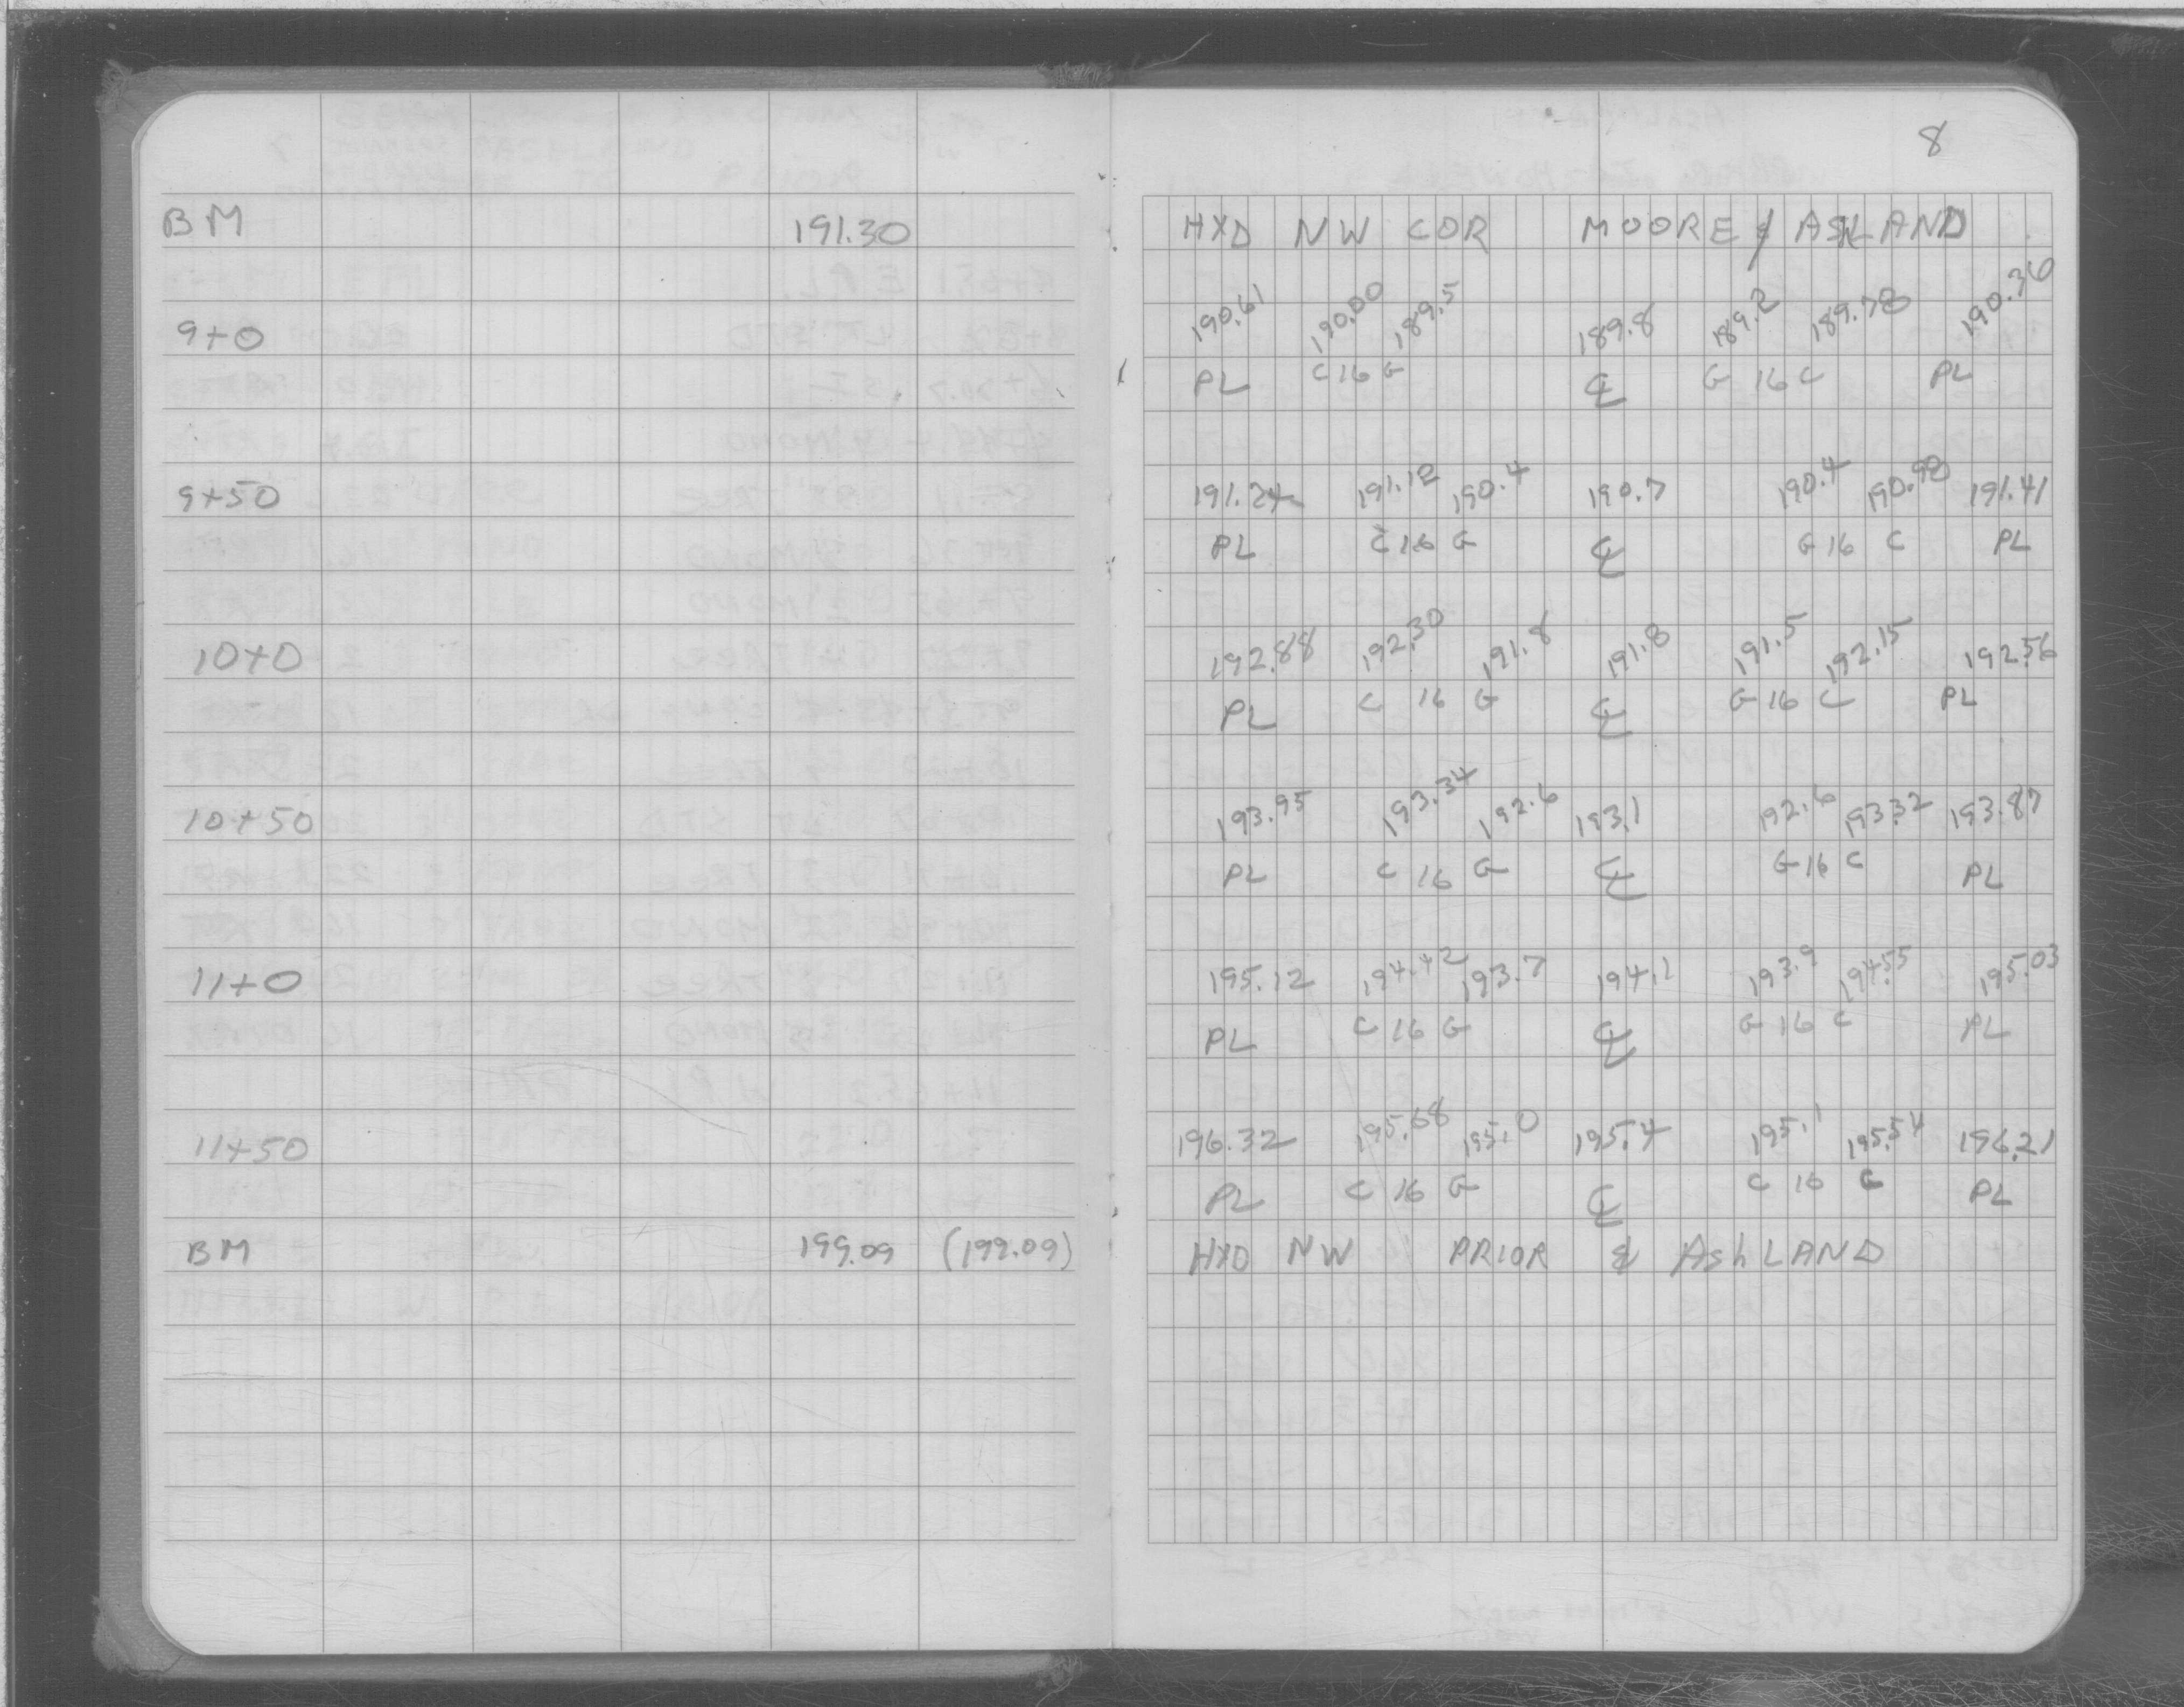 8
BM 191.30 HXD NW COR MOORE & ASHLAND
9+0 190.61 190.00 189.5 189.8 189.2 189.78 190.36
PL C 16 G ℄ G 16 C PL
9+50 191.24 191.12 190.4 190.7 190.4 190.98 191.41
PL C 16 G ℄ G 16 C PL
10+0 192.88 192.30 191.8 191.8 191.5 192.15 192.56
PL C 16 G ℄ G 16 C PL
10+50 193.95 193.34 192.6 193.1 192.6 193.32 193.87
PL C 16 G ℄ G 16 C PL
11+0 195.12 194.42 193.7 194.1 193.9 194.55 195.03
PL C 16 G ℄ G 16 C PL
11+50 196.32 195.68 195.0 195.4 195.1 195.54 196.21
PL C 16 G ℄ C 16 C PL
BM 199.09 (199.09) HXD NW PRIOR & AshLAND